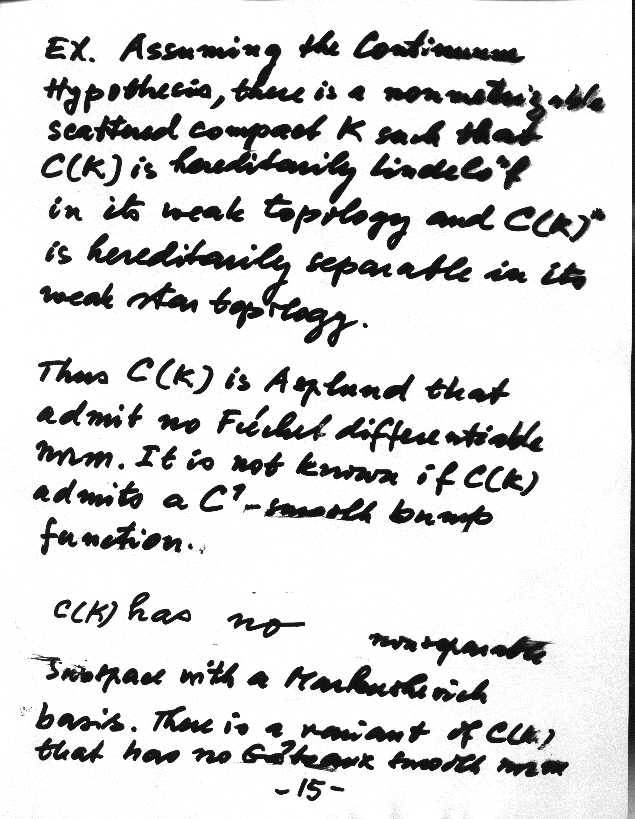 EX. Assuming the Continuum
Hypothesis, there is a nonmetrizable
scattered compact K such that
C(K) is hereditarily Lindelöf
in its weak topology and C(K)*
is hereditarily separable in its
weak star topology.
Thus C(K) is Asplund that
admit no Fréchet differentiable
norm. It is not known if C(K)
admits a C¹-smooth bump
function.
C(K) has no nonseparable
subspace with a Markushevich
basis. There is a variant of C(K)
that has no Gâteaux smooth norm
-15-